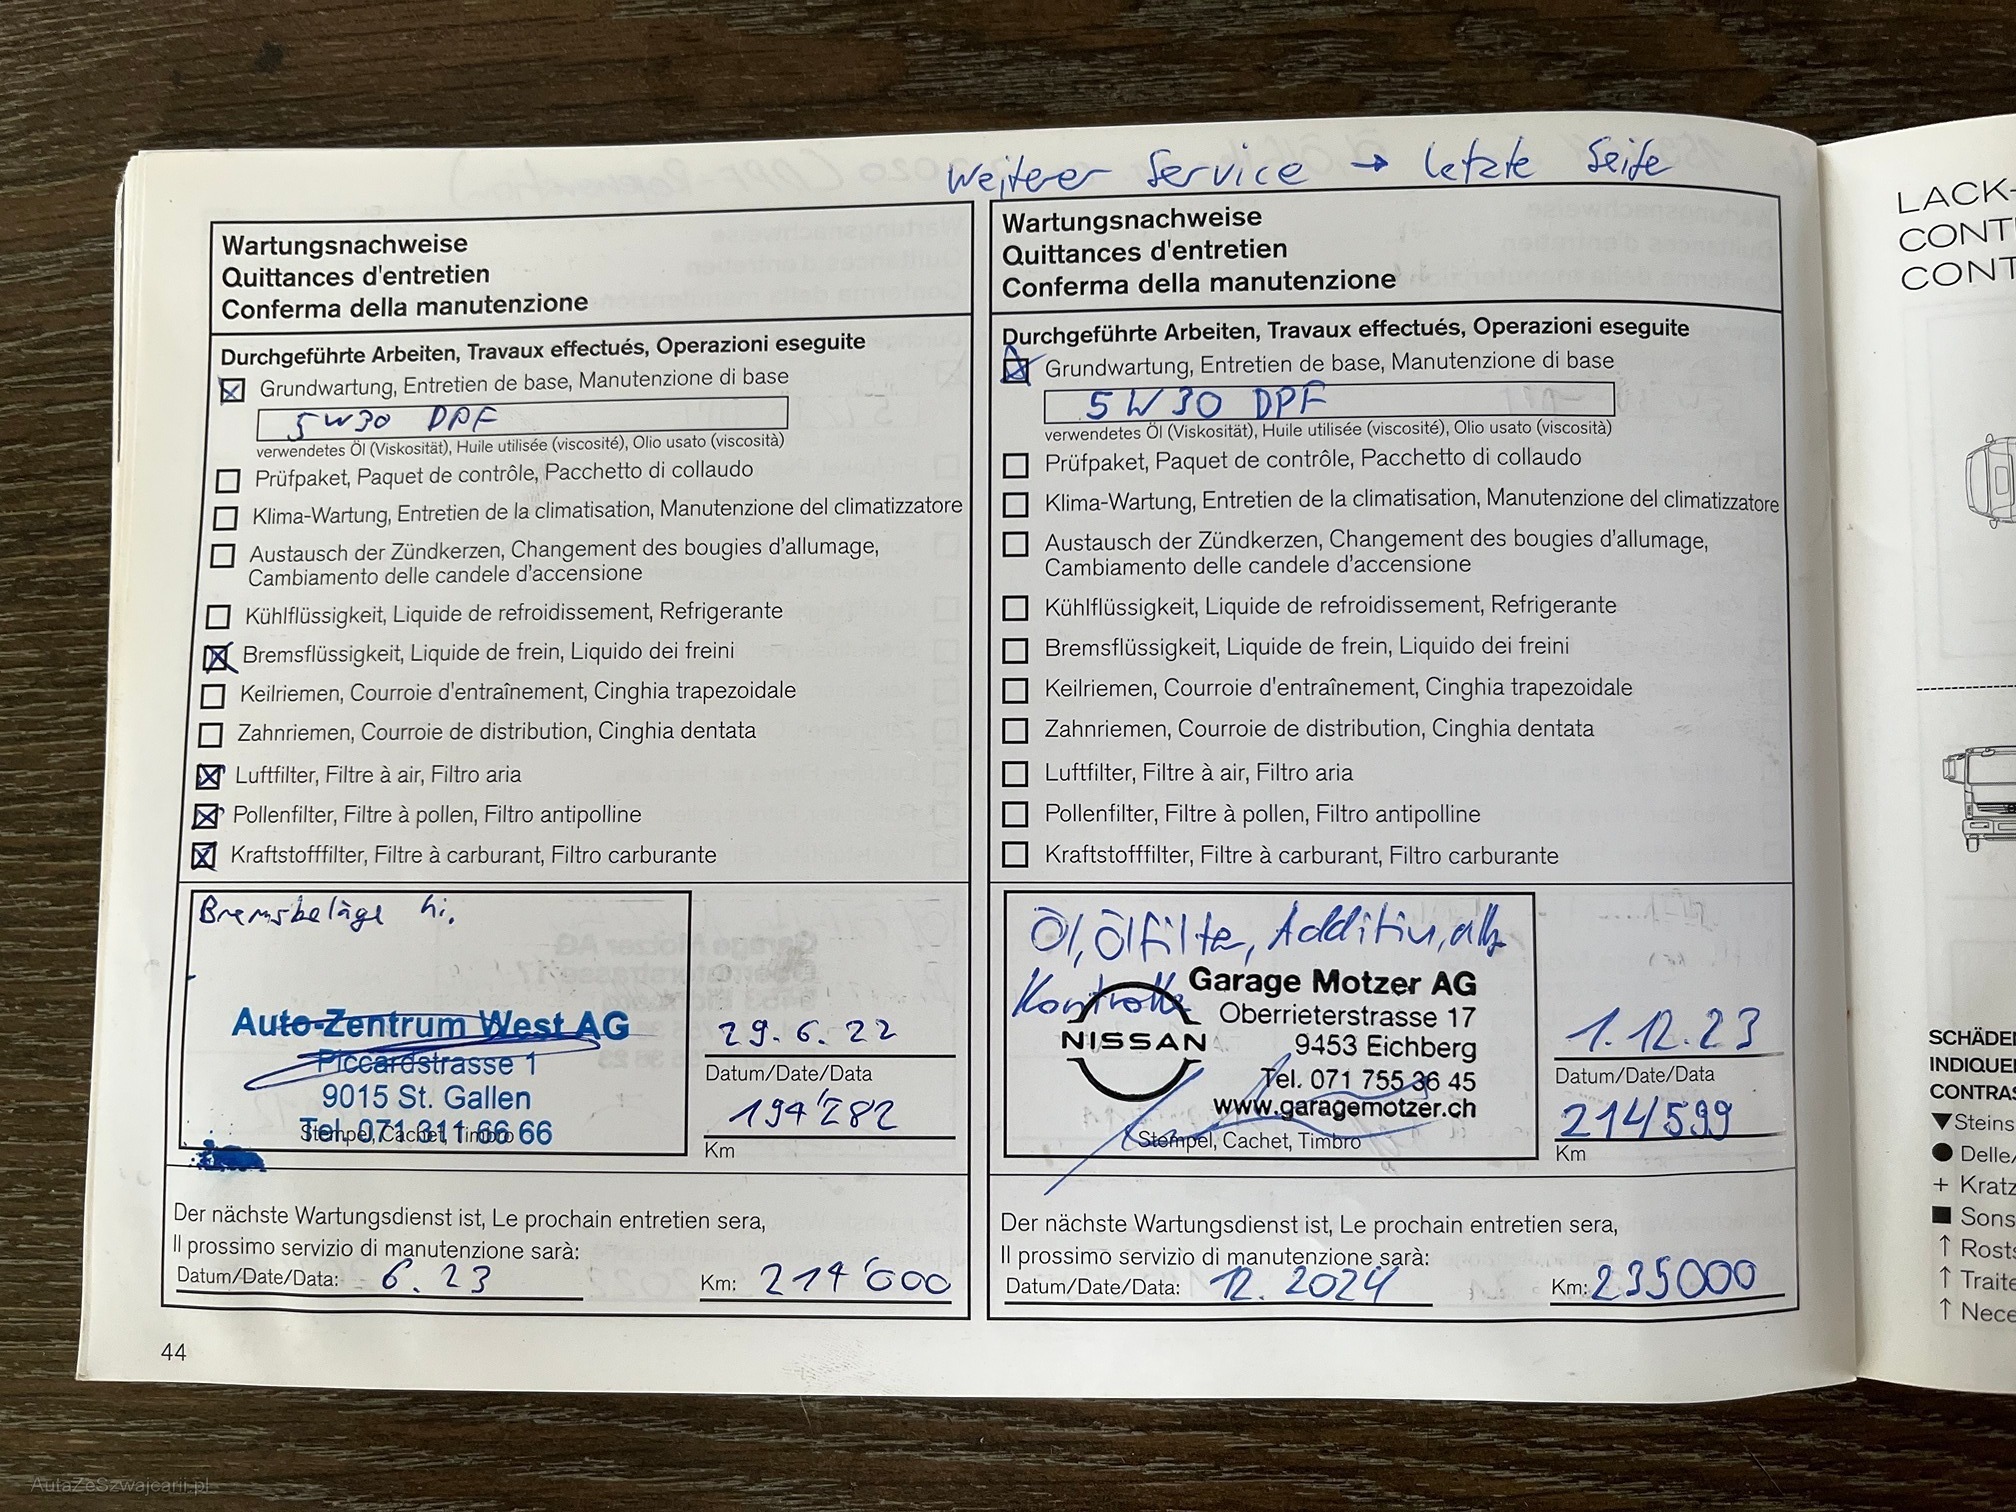 Weiterer Service → letzte Seite
Wartungsnachweise
Quittances d'entretien
Conferma della manutenzione
Durchgeführte Arbeiten, Travaux effectués, Operazioni eseguite
Grundwartung, Entretien de base, Manutenzione di base
5W30 DPF
verwendetes Öl (Viskosität), Huile utilisée (viscosité), Olio usato (viscosità)
Prüfpaket, Paquet de contrôle, Pacchetto di collaudo
Klima-Wartung, Entretien de la climatisation, Manutenzione del climatizzatore
Austausch der Zündkerzen, Changement des bougies d'allumage,
Cambiamento delle candele d'accensione
Kühlflüssigkeit, Liquide de refroidissement, Refrigerante
Bremsflüssigkeit, Liquide de frein, Liquido dei freini
Keilriemen, Courroie d'entraînement, Cinghia trapezoidale
Zahnriemen, Courroie de distribution, Cinghia dentata
Luftfilter, Filtre à air, Filtro aria
Pollenfilter, Filtre à pollen, Filtro antipolline
Kraftstofffilter, Filtre à carburant, Filtro carburante
Bremsbeläge hi.
Auto-Zentrum West AG
Piccardstrasse 1
9015 St. Gallen
Tel. 071 311 66 66
Stempel, Cachet, Timbro
29.6.22
Datum/Date/Data
194'282
Km
Der nächste Wartungsdienst ist, Le prochain entretien sera,
Il prossimo servizio di manutenzione sarà:
Datum/Date/Data: 6.23 Km: 214'000
44
Wartungsnachweise
Quittances d'entretien
Conferma della manutenzione
Durchgeführte Arbeiten, Travaux effectués, Operazioni eseguite
Grundwartung, Entretien de base, Manutenzione di base
5W30 DPF
verwendetes Öl (Viskosität), Huile utilisée (viscosité), Olio usato (viscosità)
Prüfpaket, Paquet de contrôle, Pacchetto di collaudo
Klima-Wartung, Entretien de la climatisation, Manutenzione del climatizzatore
Austausch der Zündkerzen, Changement des bougies d'allumage,
Cambiamento delle candele d'accensione
Kühlflüssigkeit, Liquide de refroidissement, Refrigerante
Bremsflüssigkeit, Liquide de frein, Liquido dei freini
Keilriemen, Courroie d'entraînement, Cinghia trapezoidale
Zahnriemen, Courroie de distribution, Cinghia dentata
Luftfilter, Filtre à air, Filtro aria
Pollenfilter, Filtre à pollen, Filtro antipolline
Kraftstofffilter, Filtre à carburant, Filtro carburante
Öl, Ölfilter, Additiv, allg
Kontrolle
NISSAN
Garage Motzer AG
Oberrieterstrasse 17
9453 Eichberg
Tel. 071 755 36 45
www.garagemotzer.ch
Stempel, Cachet, Timbro
1.12.23
Datum/Date/Data
214599
Km
Der nächste Wartungsdienst ist, Le prochain entretien sera,
Il prossimo servizio di manutenzione sarà:
Datum/Date/Data: 12.2024 Km: 235000
LACK-
CONT
CONT
SCHÄDE
INDIQUE
CONTRAS
▼Steins
● Delle/
+ Kratz
■ Sons
↑ Rosts
↑ Traite
↑ Nece
AutaZeSzwajcarii.pl